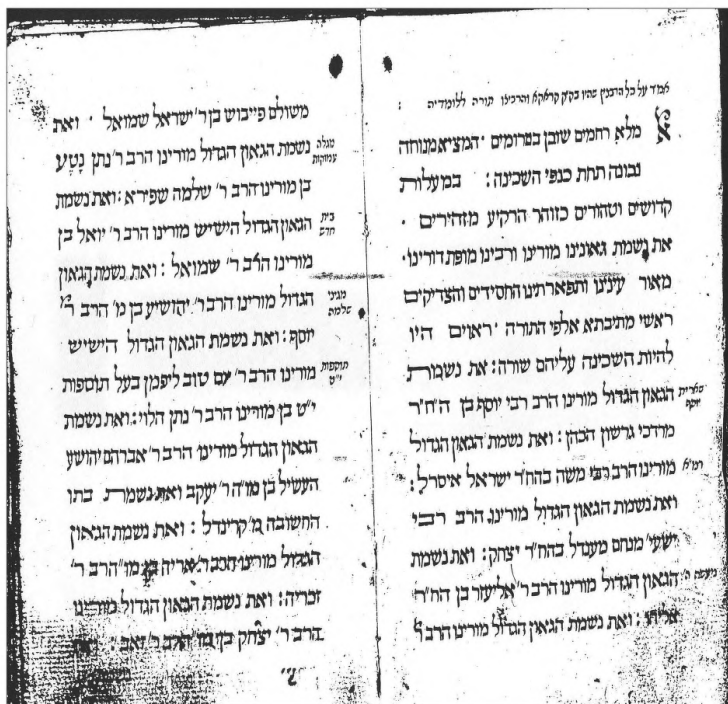 אמד על כל הרבנין שהיו בק״ק קראקא והרביצו תורה ללומדיה :
אל מלא רחמים שוכן במרומים · המציא מנוחה
נכונה תחת כנפי השכינה : במעלות
קדושים וטהורים כזוהר הרקיע מזהירים ·
את נשמת גאונינו מורינו ורבינו מופת דורינו ·
מאור עינינו ותפארתינו החסידים והצדיקים
ראשי מתיבתא אלפי התורה · ראוים היו
להיות השכינה עליהם שורה : את נשמות
שארית יוסף
הגאון הגדול מורינו הרב רבי יוסף בן הח״ר
מרדכי גרשון הכהן : ואת נשמת הגאון הגדול
רמ״א
מורינו הרב רבי משה בהח״ר ישראל איסרל :
ואת נשמת הגאון הגדול מורינו הרב רבי
ישעי׳ מנחם מענדל בהח״ר יצחק : ואת נשמת
הגאון הגדול מורינו הרב ר׳ אליעזר בן הח״ר
אליהו : ואת נשמת הגאון הגדול מורינו הרב ר׳
משולם פייבוש בן ר׳ ישראל שמואל · ואת
מגלה עמוקות
נשמת הגאון הגדול מורינו הרב ר׳ נתן נטע
בן מורינו הרב ר׳ שלמה שפירא : ואת נשמת
בית חדש
הגאון הגדול הישיש מורינו הרב ר׳ יואל בן
מורינו הרב ר׳ שמואל : ואת נשמת הגאון
מגיני שלמה
הגדול מורינו הרב ר׳ יהושיע בן מ׳ הרב ר׳
יוסף : ואת נשמת הגאון הגדול הישיש
תוספות י״ט
מורינו הרב ר׳ יום טוב ליפמן בעל תוספות
י״ט בן מורינו הרב ר׳ נתן הלוי : ואת נשמת
הגאון הגדול מורינו הרב ר׳ אברהם יהושע
העשיל בן מו״ה ר׳ יעקב ואת נשמת בתו
החשובה מ׳ קרינדל : ואת נשמת הגאון
הגדול מורינו הרב ר׳ אריה בן מו״הרב ר׳
זכריה : ואת נשמת הגאון הגדול מורינו
הרב ר׳ יצחק בן מו״הרב ר׳ זאב : ואת